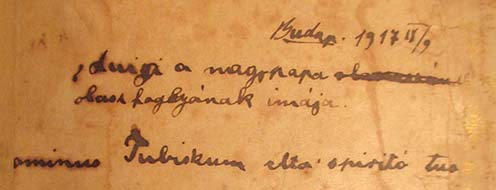 Budap. 1917 II/9
Luigi a nagypapa
olasz foglyának imája.
ominus Tubiskum elta spiritó tuo